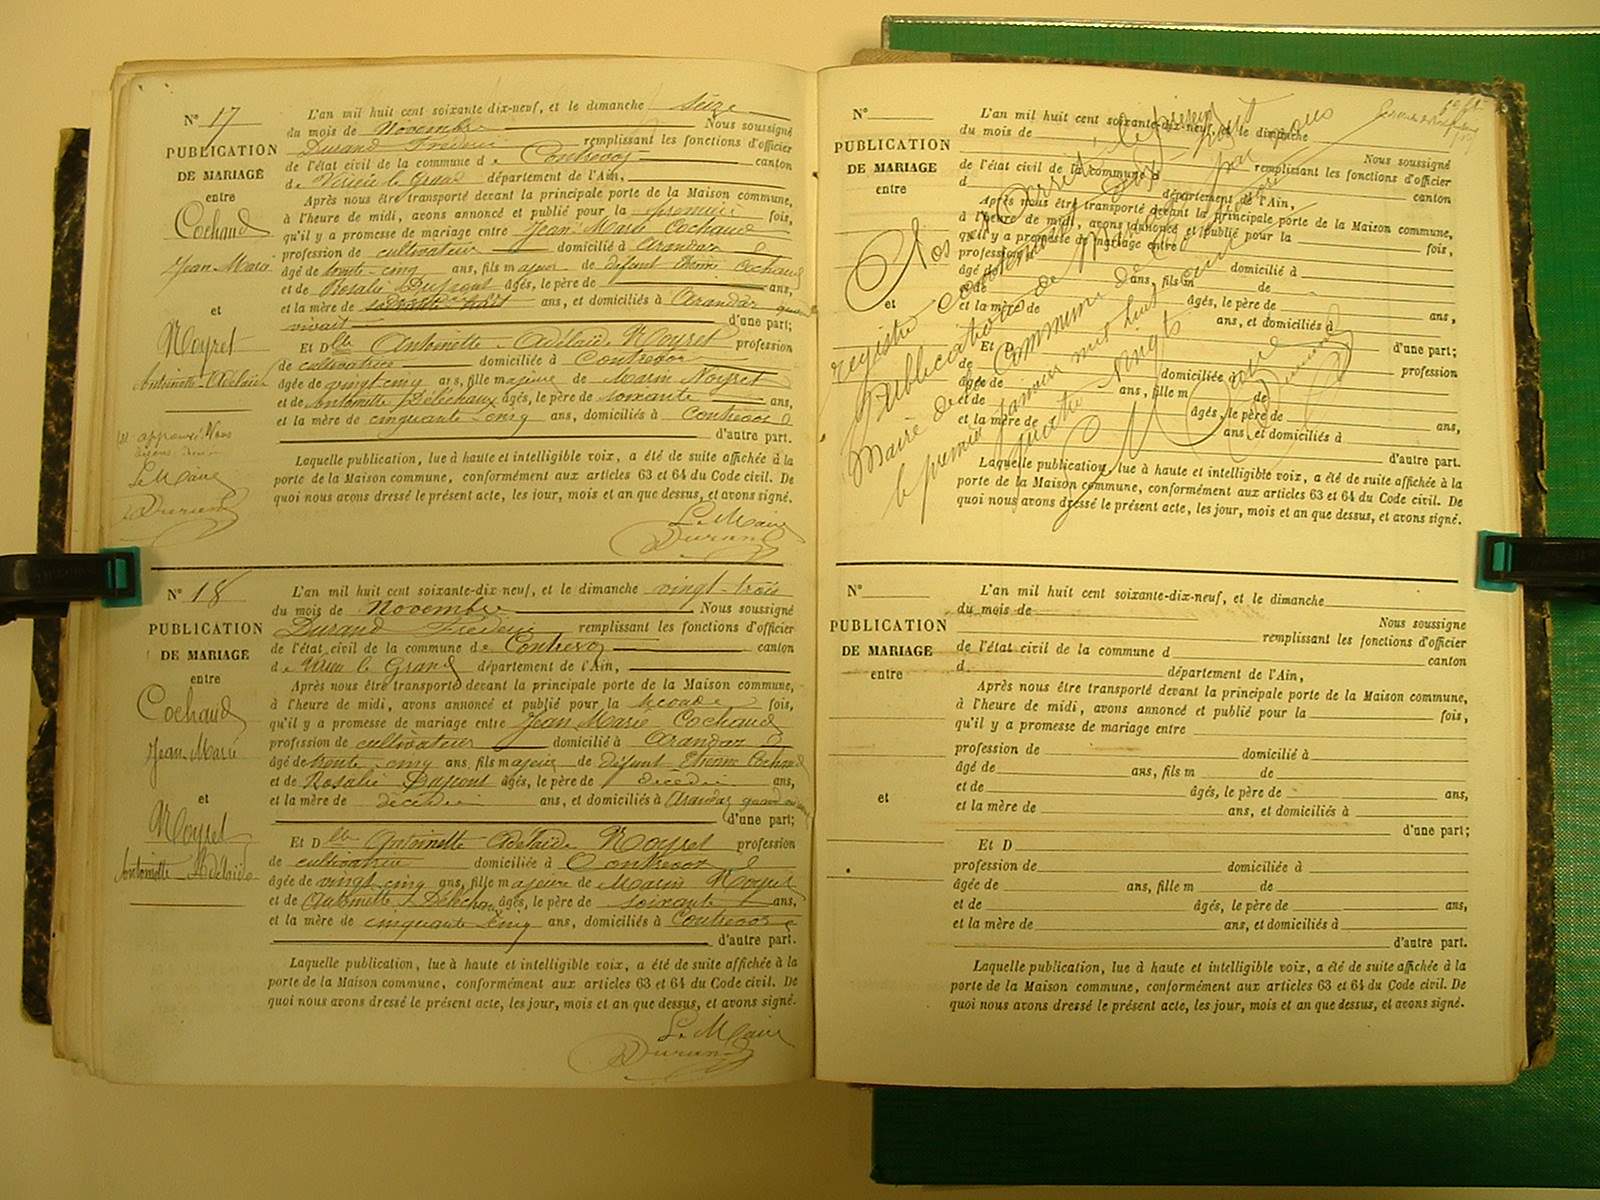 N° 17
PUBLICATION
DE MARIAGE
entre
Cochaud
Jean Marie
et
Noyret
Antoinette Adélaïde
Le Maire
Durand
L'an mil huit cent soixante dix-neuf, et le dimanche seize
du mois de Novembre Nous soussigné
Durand Frédéric remplissant les fonctions d'officier
de l'état civil de la commune de Contrevoz canton
de Virieu le Grand département de l'Ain,
Après nous être transporté devant la principale porte de la Maison commune,
à l'heure de midi, avons annoncé et publié pour la première fois,
qu'il y a promesse de mariage entre Jean Marie Cochaud
profession de cultivateur domicilié à Arandaz
âgé de trente-cinq ans, fils majeur de défunt Etienne Cochaud
et de Rosalie Dupont âgés, le père de ans,
et la mère de ans, et domiciliés à Arandaz quand
vivait d'une part;
Et Dlle Antoinette Adélaïde Noyret profession
de cultivatrice domiciliée à Contrevoz
âgée de vingt cinq ans, fille majeure de Marin Noyret
et de Antoinette Déléchaux âgés, le père de soixante ans,
et la mère de cinquante cinq ans, domiciliés à Contrevoz
d'autre part.
Laquelle publication, lue à haute et intelligible voix, a été de suite affichée à la
porte de la Maison commune, conformément aux articles 63 et 64 du Code civil. De
quoi nous avons dressé le présent acte, les jour, mois et an que dessus, et avons signé.
Le Maire
Durand
N° 18
PUBLICATION
DE MARIAGE
entre
Cochaud
Jean Marie
et
Noyret
Antoinette Adélaïde
L'an mil huit cent soixante-dix neuf, et le dimanche vingt-trois
du mois de Novembre Nous soussigné
Durand Frédéric remplissant les fonctions d'officier
de l'état civil de la commune de Contrevoz canton
de Virieu le Grand département de l'Ain,
Après nous être transporté devant la principale porte de la Maison commune,
à l'heure de midi, avons annoncé et publié pour la seconde fois,
qu'il y a promesse de mariage entre Jean Marie Cochaud
profession de cultivateur domicilié à Arandaz
âgé de trente-cinq ans, fils majeur de défunt Etienne Cochaud
et de Rosalie Dupont âgés, le père de décédé ans,
et la mère de décédée ans, et domiciliés à Arandaz quand
d'une part;
Et Dlle Antoinette Adélaïde Noyret profession
de cultivatrice domiciliée à Contrevoz
âgée de vingt cinq ans, fille majeure de Marin Noyret
et de Antoinette Déléchaux âgés, le père de soixante ans,
et la mère de cinquante cinq ans, domiciliés à Contrevoz
d'autre part.
Laquelle publication, lue à haute et intelligible voix, a été de suite affichée à la
porte de la Maison commune, conformément aux articles 63 et 64 du Code civil. De
quoi nous avons dressé le présent acte, les jour, mois et an que dessus, et avons signé.
Le Maire
Durand
N°
PUBLICATION
DE MARIAGE
entre
et
L'an mil huit cent soixante-dix-neuf, et le dimanche
du mois de Nous soussigné
remplissant les fonctions d'officier
de l'état civil de la commune d canton
d département de l'Ain,
Après nous être transporté devant la principale porte de la Maison commune,
à l'heure de midi, avons annoncé et publié pour la fois,
qu'il y a promesse de mariage entre
profession de domicilié à
âgé de ans, fils m de
et de âgés, le père de ans,
et la mère de ans, et domiciliés à
d'une part;
Et D profession
de domiciliée à
âgée de ans, fille m de
et de âgés, le père de ans,
et la mère de ans, et domiciliés à
d'autre part.
Laquelle publication, lue à haute et intelligible voix, a été de suite affichée à la
porte de la Maison commune, conformément aux articles 63 et 64 du Code civil. De
quoi nous avons dressé le présent acte, les jour, mois et an que dessus, et avons signé.
Clos et arrêté le présent
registre contenant dix-huit
Publications de Mariage par nous
Maire de la Commune de Contrevoz
le premier janvier mil huit cent
quatre vingts
Le Maire
Durand
N°
PUBLICATION
DE MARIAGE
entre
et
L'an mil huit cent soixante-dix-neuf, et le dimanche
du mois de Nous soussigné
remplissant les fonctions d'officier
de l'état civil de la commune d canton
d département de l'Ain,
Après nous être transporté devant la principale porte de la Maison commune,
à l'heure de midi, avons annoncé et publié pour la fois,
qu'il y a promesse de mariage entre
profession de domicilié à
âgé de ans, fils m de
et de âgés, le père de ans,
et la mère de ans, et domiciliés à
d'une part;
Et D
profession de domiciliée à
âgée de ans, fille m de
et de âgés, le père de ans,
et la mère de ans, et domiciliés à
d'autre part.
Laquelle publication, lue à haute et intelligible voix, a été de suite affichée à la
porte de la Maison commune, conformément aux articles 63 et 64 du Code civil. De
quoi nous avons dressé le présent acte, les jour, mois et an que dessus, et avons signé.